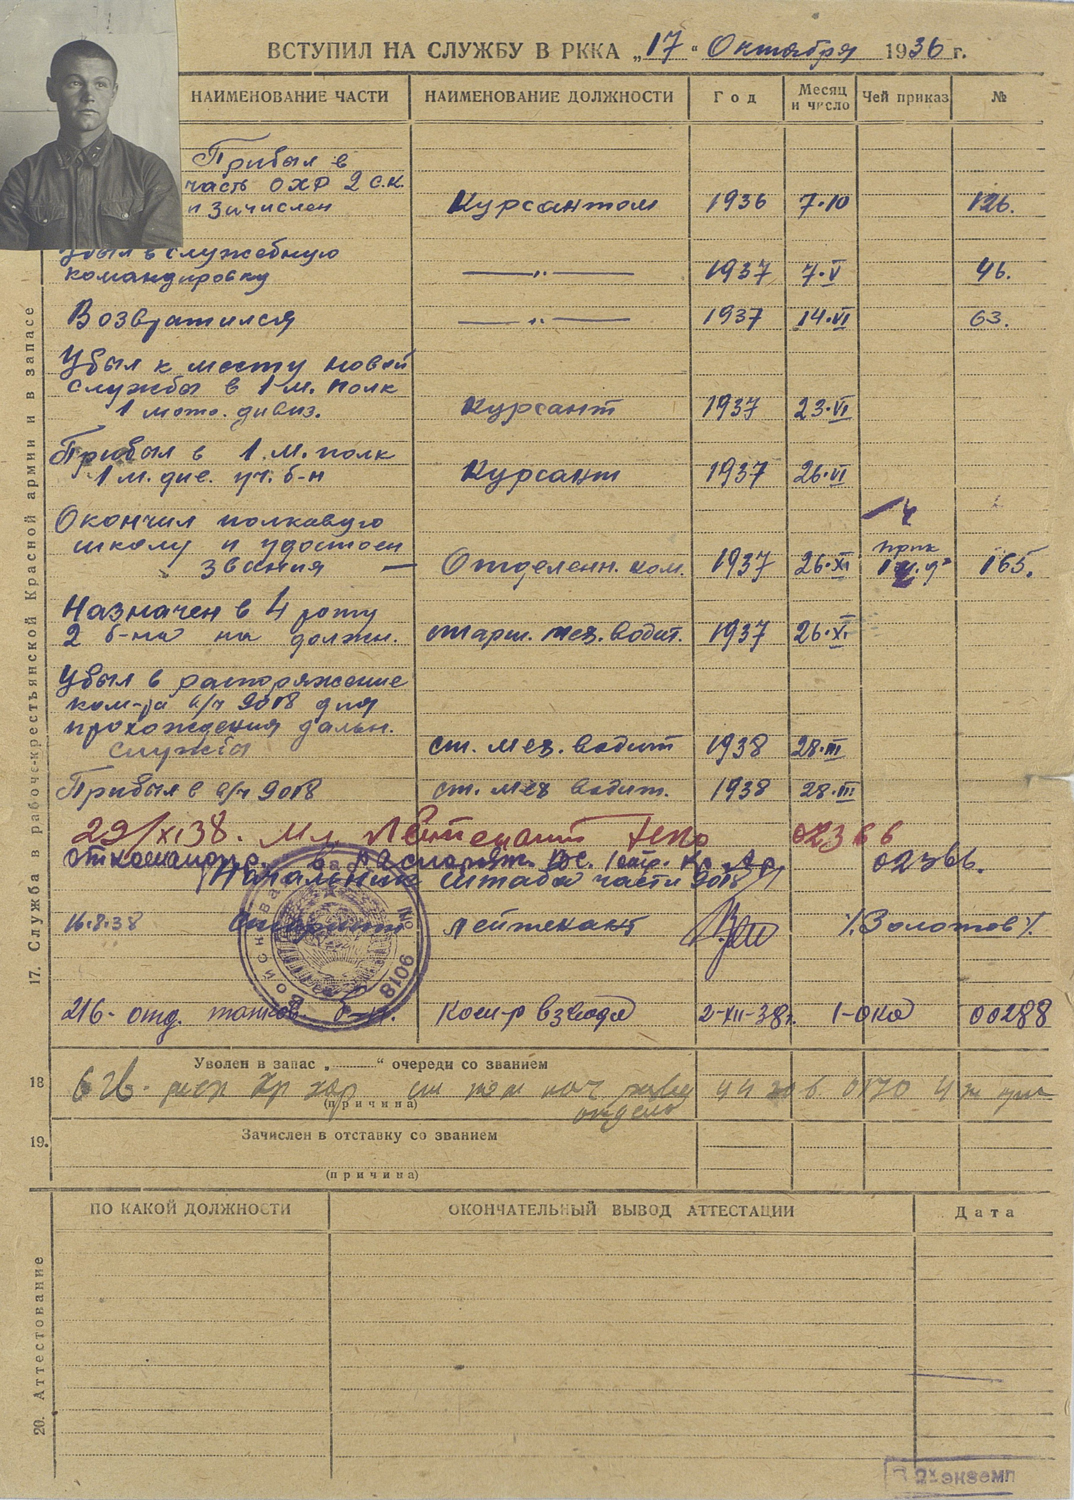 ВСТУПИЛ НА СЛУЖБУ В РККА „17“ Октября 1936 г.
НАИМЕНОВАНИЕ ЧАСТИ НАИМЕНОВАНИЕ ДОЛЖНОСТИ Год Месяц и число Чей приказ №
Прибыл в
часть ОХР 2 с.к.
и зачислен Курсантом 1936 7·10 126.
Убыл в служебную
командировку —〃— 1937 7·V 46.
Возвратился —〃— 1937 14·VI 63.
Убыл к месту новой
службы в 1 м. полк
1 мото. дивиз. Курсант 1937 23·VI
Прибыл в 1 м. полк
1 м. див. уч. б-н Курсант 1937 26·VI
Окончил полкавую
школу и удостоен
звания — Отделенн. ком. 1937 26·XI прик 165.
Назначен в 4 роту
2 б-на на должн. старш. мех. водит. 1937 26·XI
Убыл в распоряжение
ком-ра в/ч 9018 для
прохождения дальн.
службы ст. мех. водит 1938 28·III
Прибыл в в/ч 9018 ст. мех водит. 1938 28·III
29/XI 38. Мл Лейтенант НКО 02366
откомандир. в распоряж. 02366.
Начальник штаба части 9018
16.8.38 лейтенант /Золотов/
Войсковая часть № 9018
216- отд. танков. б-н. Ком-р взвода 2-XII-38г. 1-ока 00288
17. Служба в рабоче-крестьянской Красной армии и в запасе
18 Уволен в запас „ “ очереди со званием
(причина)
отдела
19. Зачислен в отставку со званием
(причина)
ПО КАКОЙ ДОЛЖНОСТИ ОКОНЧАТЕЛЬНЫЙ ВЫВОД АТТЕСТАЦИИ Дата
20. Аттестование
2й экземп